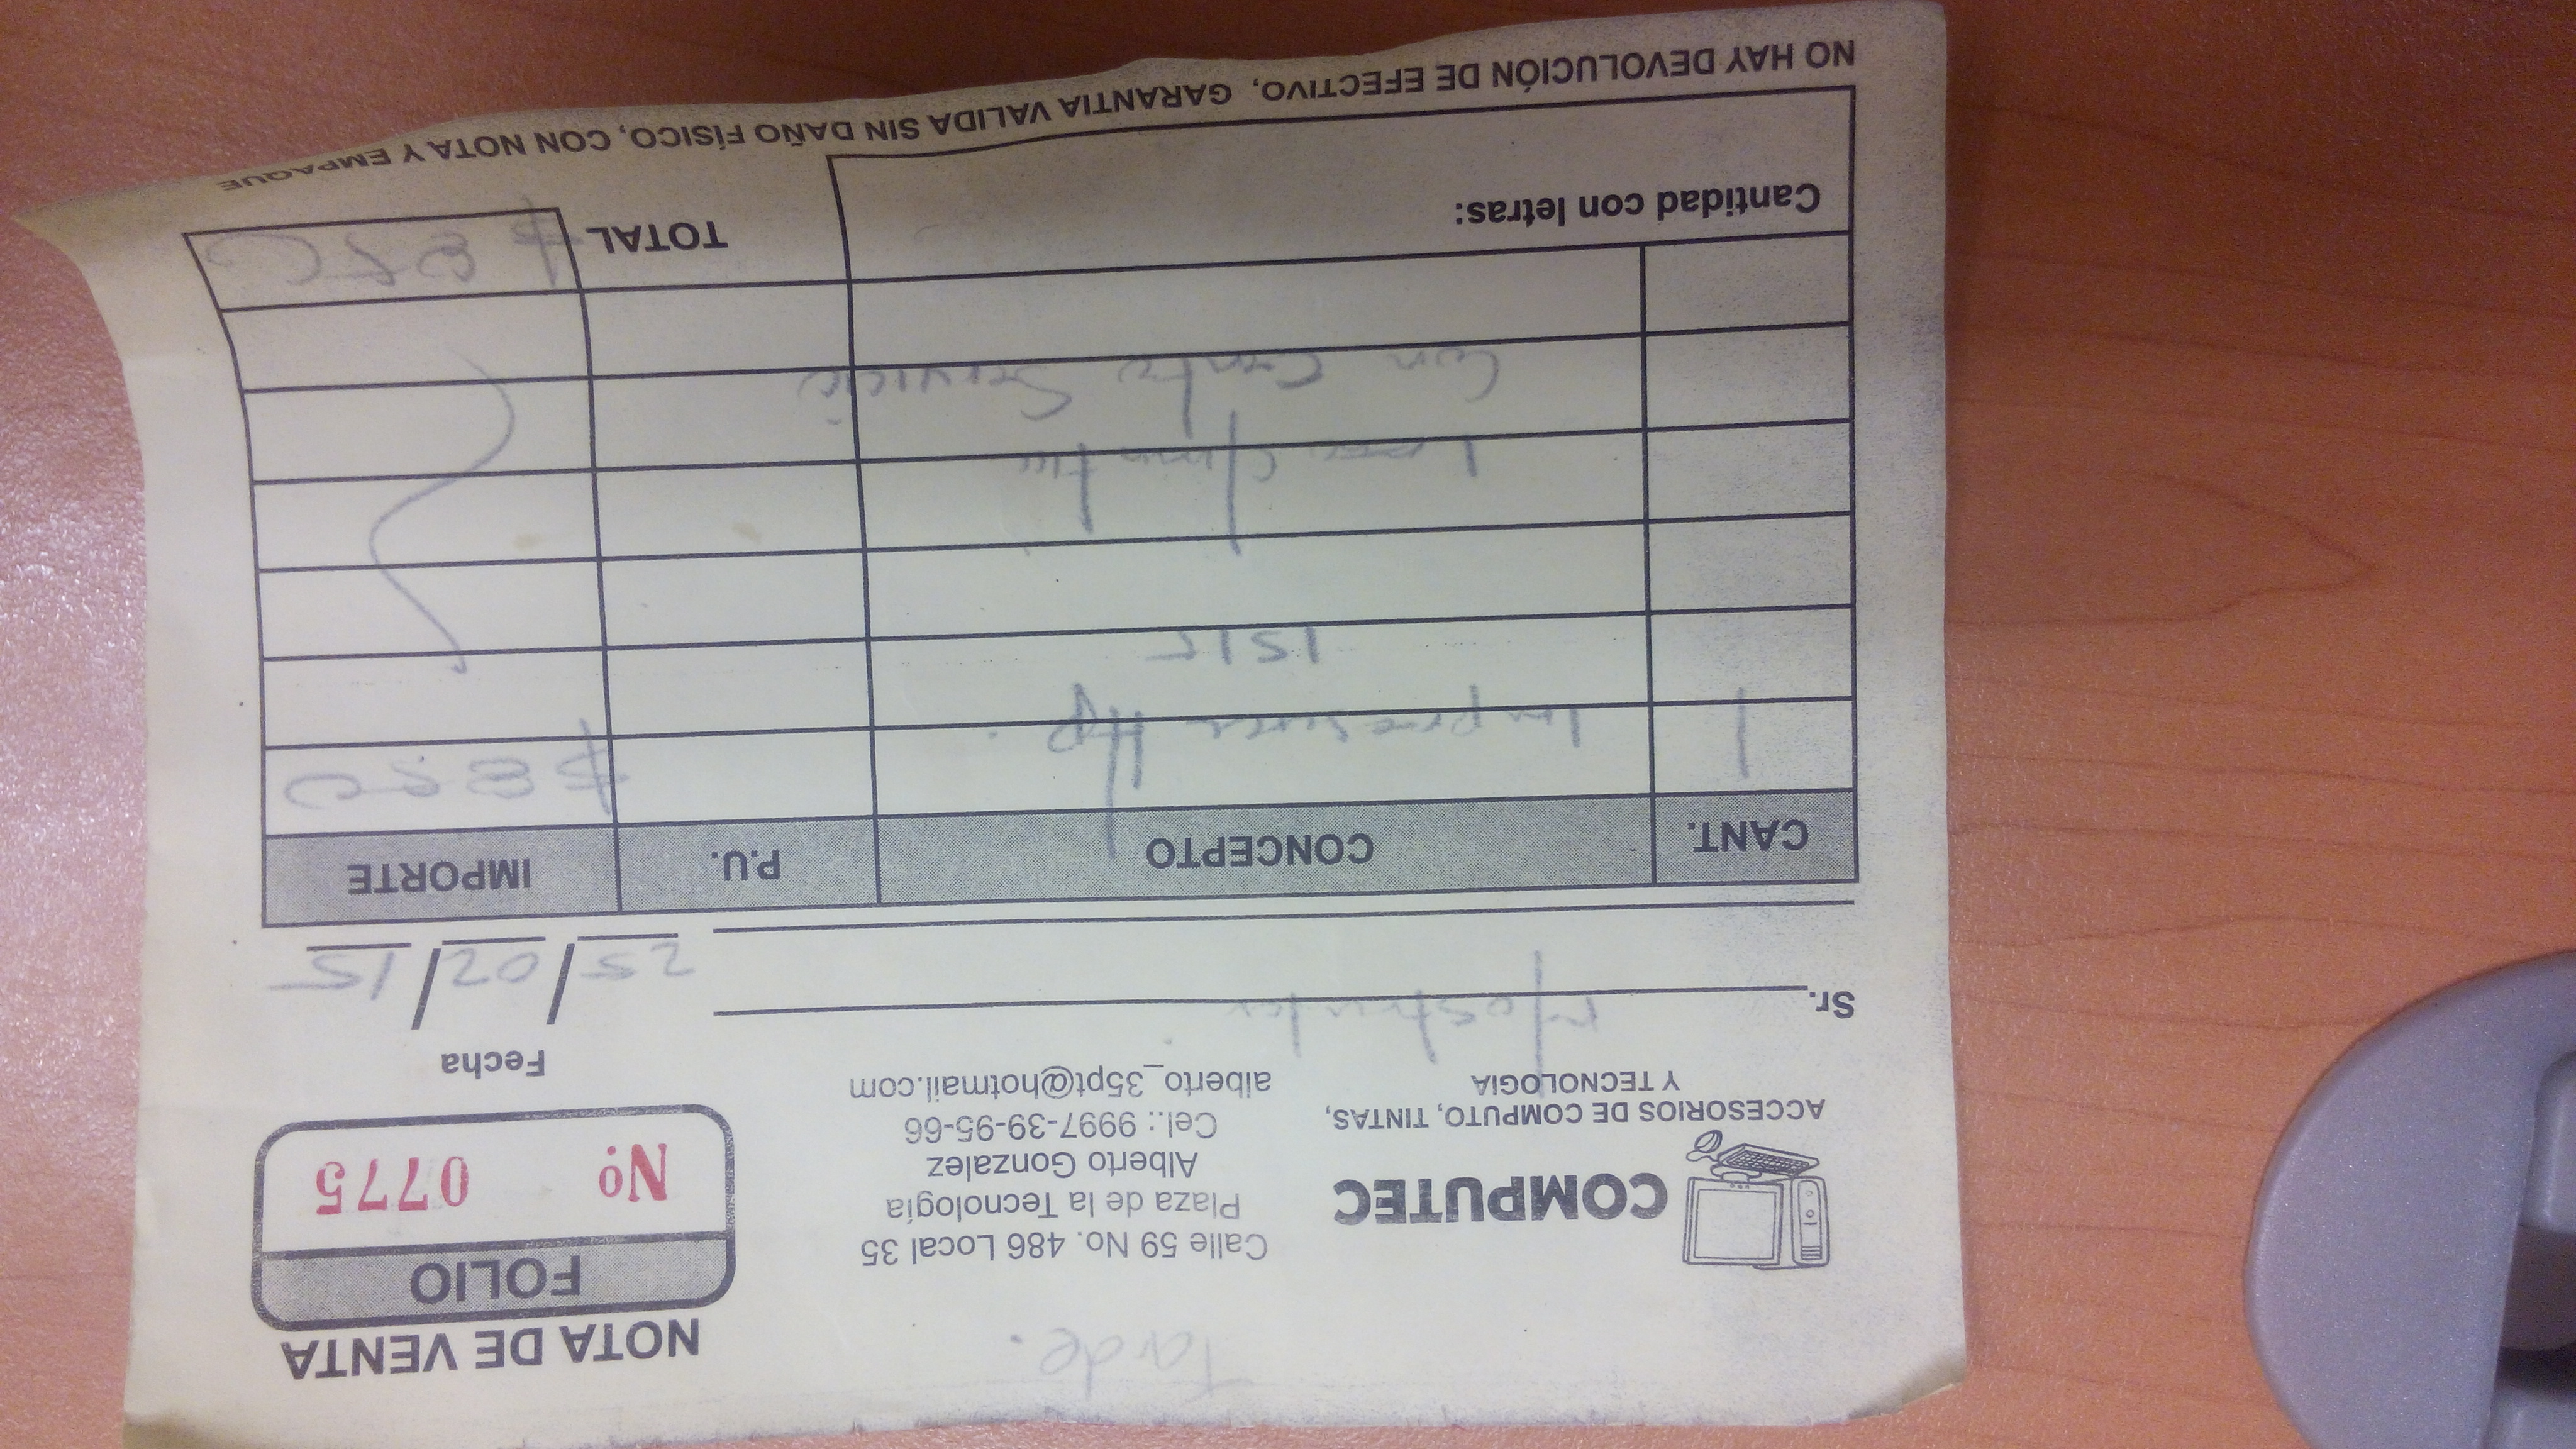 Tarde.
NOTA DE VENTA
COMPUTEC
ACCESORIOS DE COMPUTO, TINTAS,
Y TECNOLOGIA
Calle 59 No. 486 Local 35
Plaza de la Tecnología
Alberto Gonzalez
Cel.: 9997-39-95-66
alberto_35pt@hotmail.com
FOLIO
Nº 0775
Fecha
25/02/15
Sr. Mostrador
CANT. CONCEPTO P.U. IMPORTE
1 Impresora Hp. $850
1515
1 con
Con Centro Servicio
Cantidad con letras:
TOTAL $850
NO HAY DEVOLUCIÓN DE EFECTIVO, GARANTIA VALIDA SIN DAÑO FÍSICO, CON NOTA Y EMPAQUE